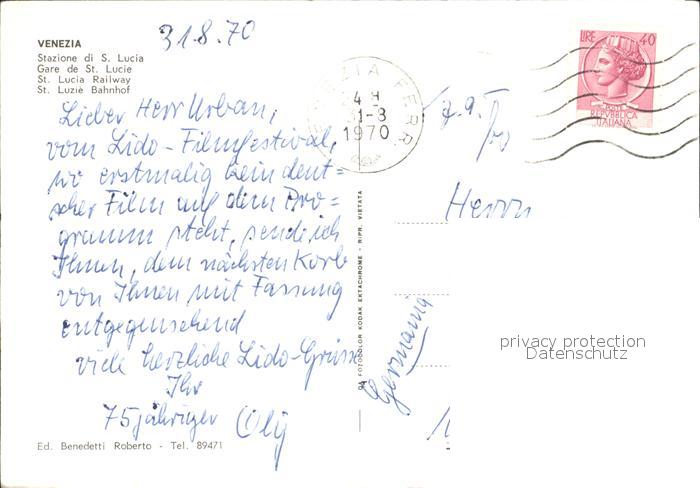 31.8.70
VENEZIA
Stazione di S. Lucia
Gare de St. Lucie
St. Lucia Railway
St. Luziè Bahnhof
Lieber Herr Urban,
vom Lido-Filmfestival,
wo erstmalig kein deut=
scher Film auf dem Pro=
gramm steht, sende ich
Ihnen, dem nächsten Korb
von Ihnen mit Fassung
entgegensehend
viele herzliche Lido-Grüsse
Ihr
75jähriger
Ed. Benedetti Roberto - Tel. 89471
FOTOCOLOR KODAK EKTACHROME - RIPR. VIETATA
VENEZIA FERR.
31-8
1970
LIRE 40
POSTE
REPVBBLICA
ITALIANA
Herrn
Germania
privacy protection
Datenschutz